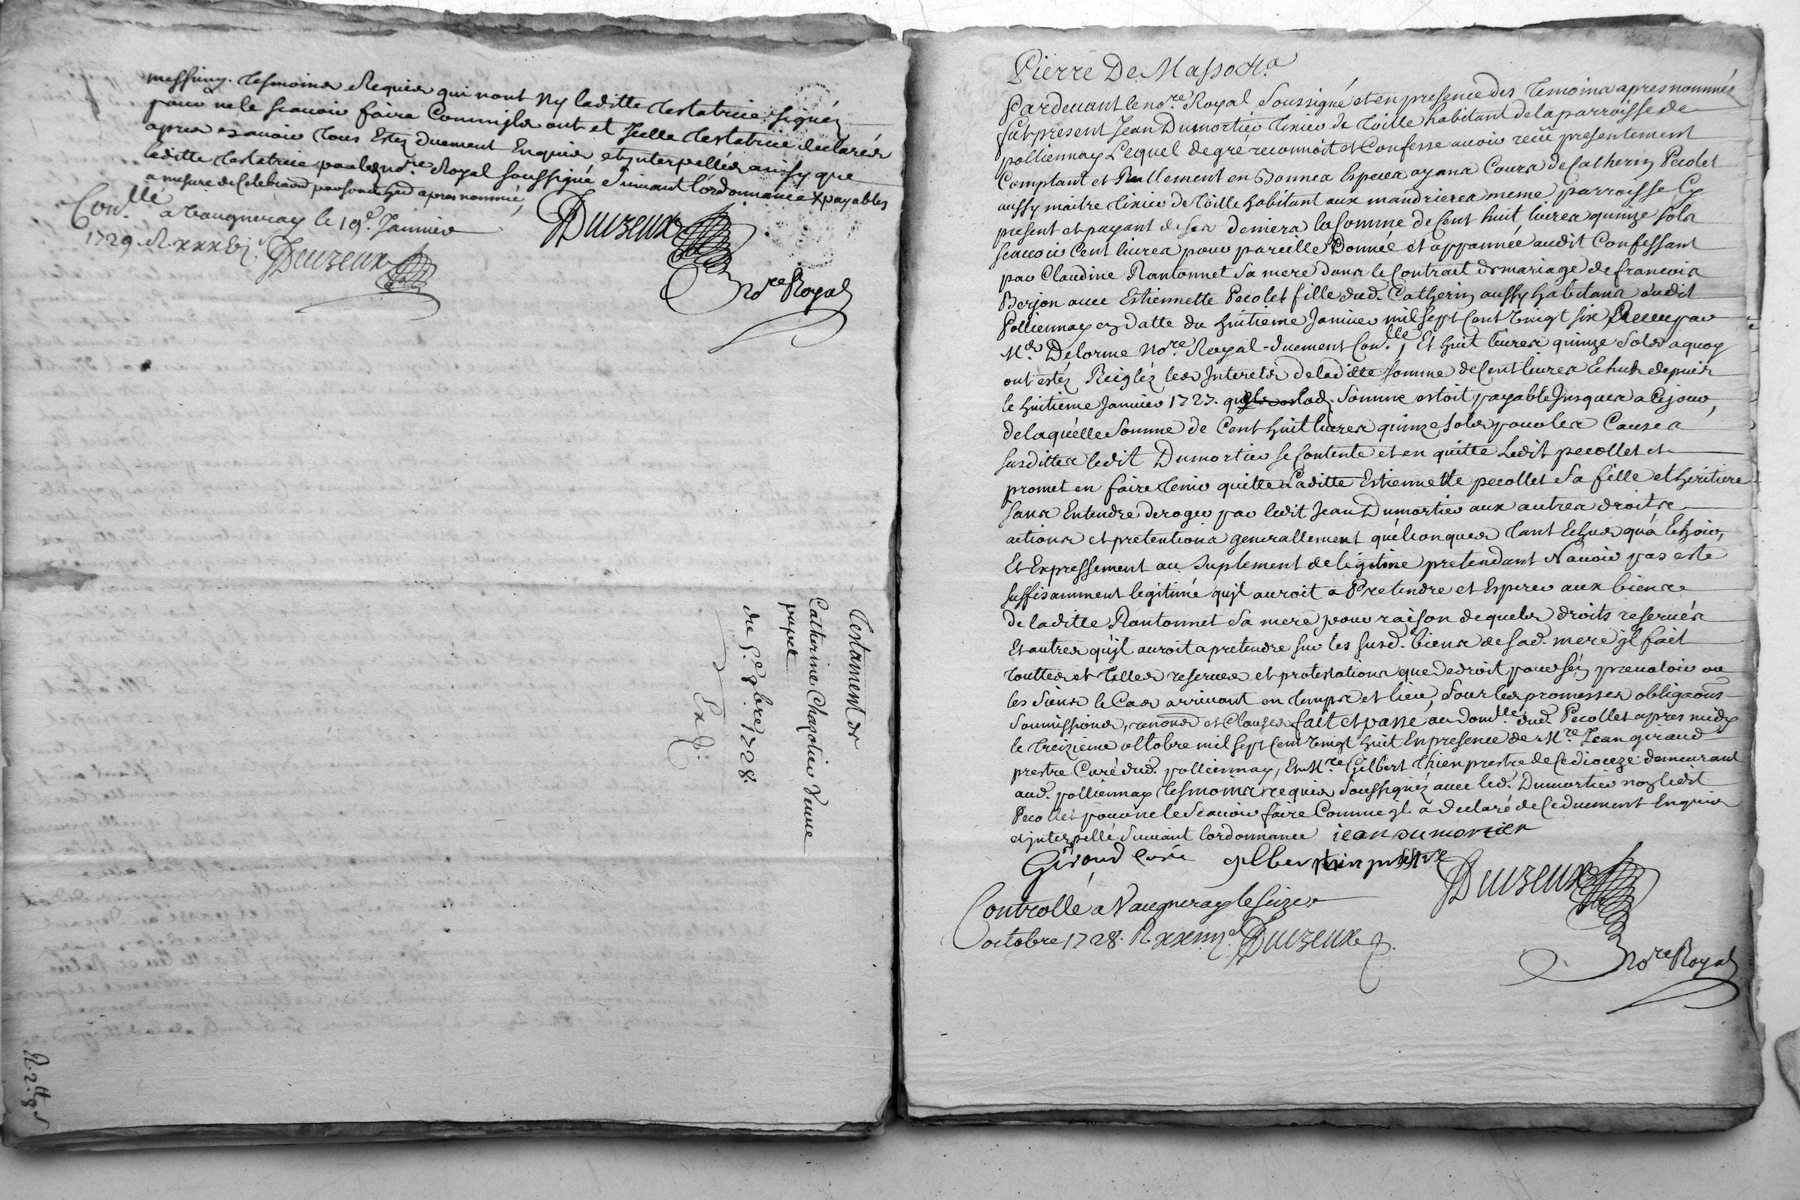 messimy tesmoins Requis qui nont Ny laditte testatrice signé
pour ne le scavoir faire Comme ils ont et Icelle testatrice declarés
apres en avoir tous Estez duement Enquis et interpellés ainsy que
laditte testatrice par led no.re Royal soussigné suivant lordonnance payables
a mesure de
Con.llé a Vaugneray le 19e Janvier
1729. R.
Duvzeux
Duvzeux
No.re Royal
Testament de
Catherine Chapolier veuve
papet
du 5e 9bre 1728
Exd.
Pierre De Masso
Pardevant le no.re Royal Soussigné et en presence des Temoins apres nommés
fut present Jean Dumortier tixier de Toille habitant de la parroisse de
pollionnay Lequel de gré reconnoit et Confesse avoir reçeu presentement
Comptant et Reellement en Bonnes Especes ayans Cours de Catherin Pecolet
aussy maitre tixier de toille habitant aux mandrieres meme parroisse Cy
present et payant de ses deniers la somme de Cent huit livres quinze sols
scavoir Cent livres pour pareille Donnée et appannée audit Confessant
par Claudine Rantonnet sa mere dans le Contrait de mariage de francois
Berjon avec Estiennette Pecolet fille dud. Catherin aussy habitans dudit
Pollionnay en datte du huitieme Janvier mil sept Cent vingt six Receu par
Me Delorme No.re Royal duement Con.llé, Et huit livres quinze Sols a quoy
ont estéz Reiglez les Interets de laditte somme de Cent livres Echus depuis
le huitieme Janvier 1727. que lad. Somme estoit payable Jusques a Ce jour,
de laquelle Somme de Cent huit livres quinze sols pour les Causes
susdittes ledit Dumortier se Contente et en quitte Ledit pecollet et
promet en faire tenir quitte Laditte Estiennette pecollet Sa fille et heritiere
sans Entendre deroger par ledit Jean Dumortier aux autres droits
actions et pretentions generallement quelconques tant Echus qua Echoir,
Et Expressement au Suplement de legitime pretendant N'avoir pas este
suffisamment legitimé qu'jl auroit a Pretendre et Esperer aux biens
de laditte Rantonnet sa mere pour raison dequels droits reservés
et autres qu'jl auroit a pretendre sur les susd. biens de sad. mere jl fait
touttes et telles reserves et protestations que de droit pour s'en prevaloir ou
les siens le Cas arrivant en temps et lieu, sous les promesses obliga.ons
soumissions, renon.ons et Clauses fait et passé au dom.lle dud. Pecollet apres midy
le treizieme octobre mil sept Cent vingt huit En presence de M.re Jean giraud
prestre Curé dud. pollionnay, Et M.re Gilbert thien prestre de Ce dioceze demeurant
aud. pollionnay tesmoins requis soussignez avec led. Dumortier non ledit
Pecollet pour ne le scavoir faire Comme jl a declaré de Ce duement Enquis
et jnterpellé suivant lordonnance jean dumortier
Giraud Curé gilbert thien prestre
Duvzeux
Controllé a Vaugneray le seize
octobre 1728. R Duvzeux
No.re Royal